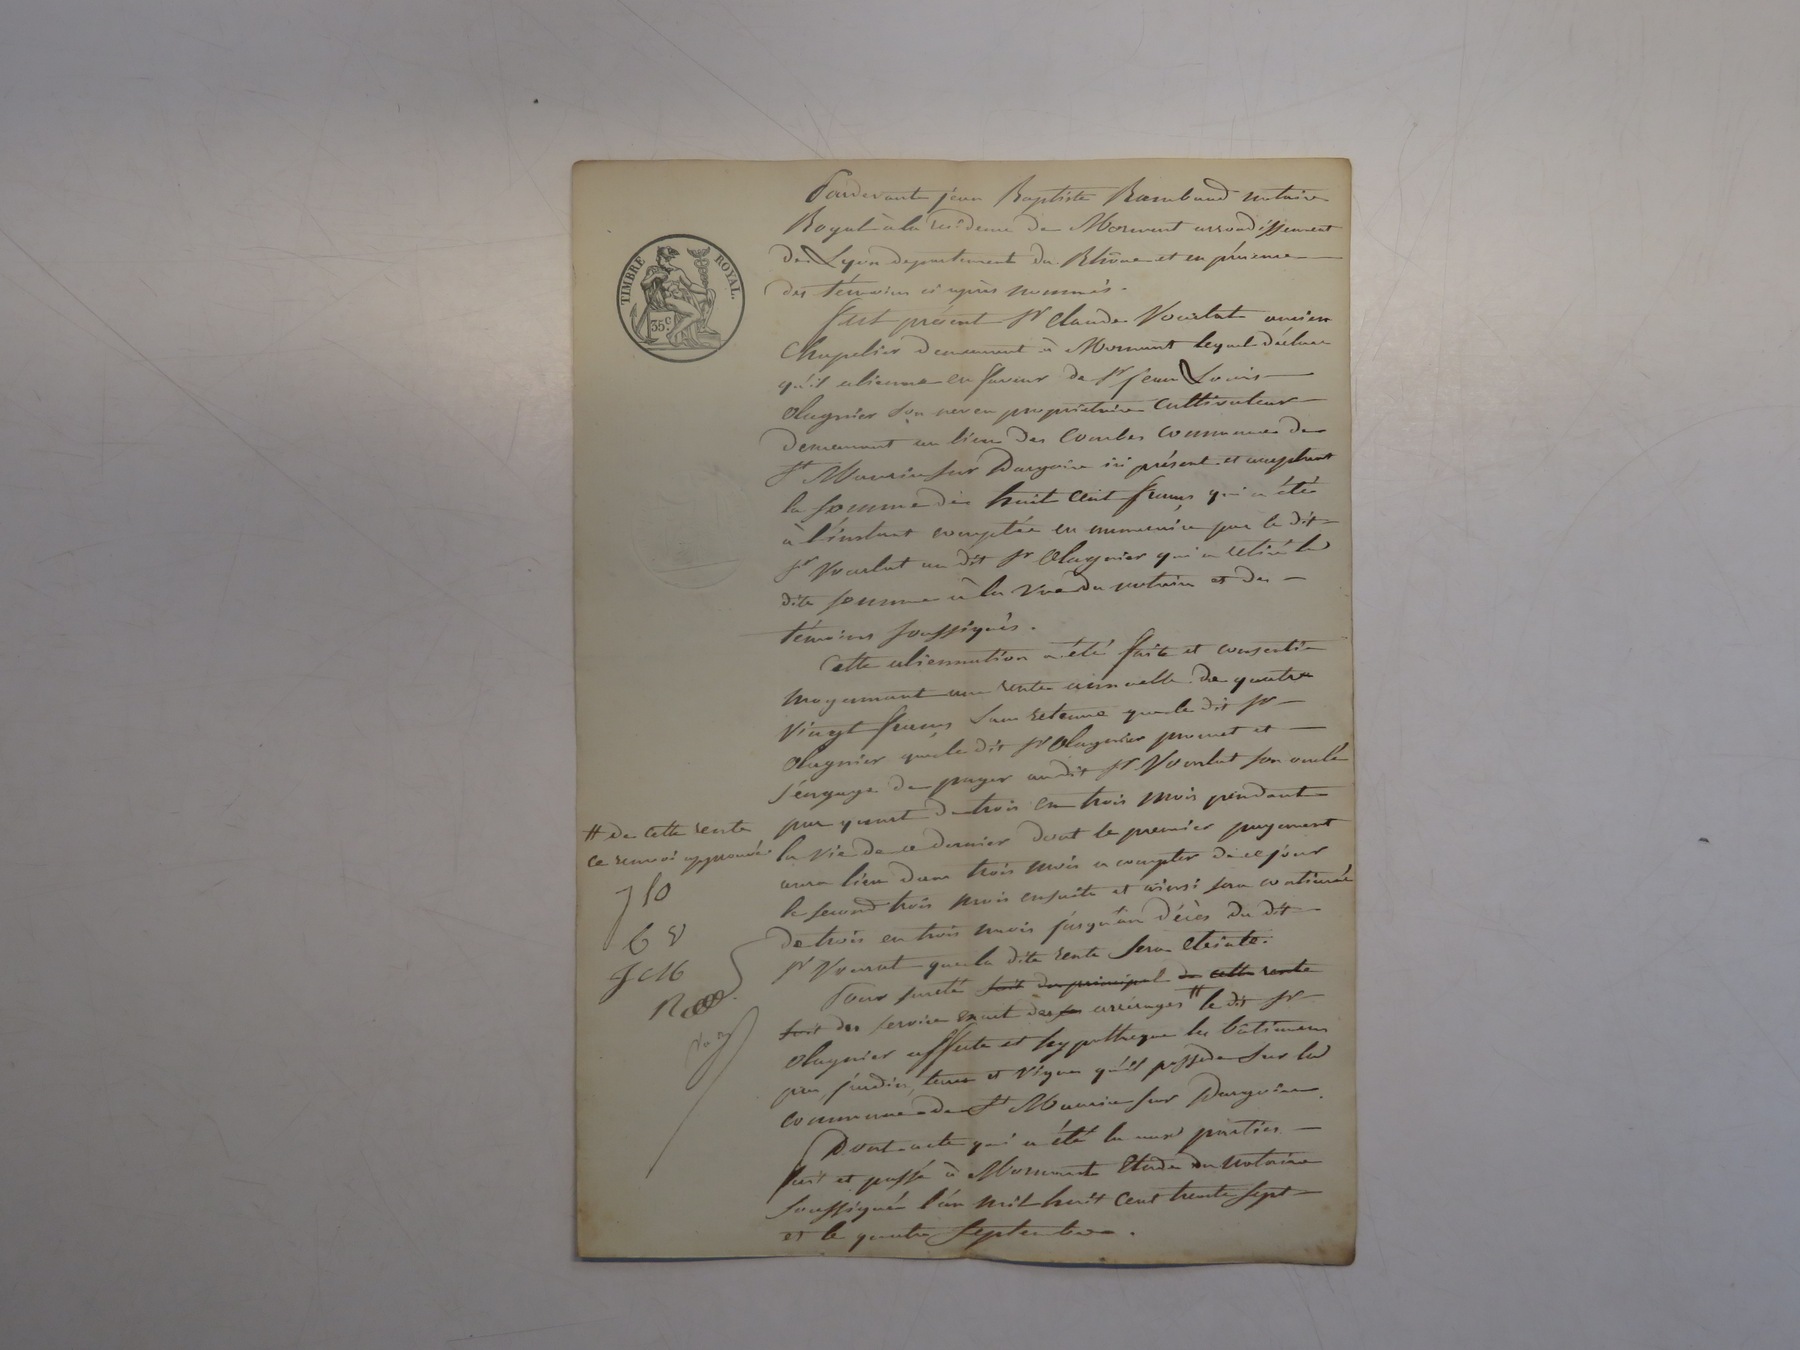 TIMBRE ROYAL.
35 c.
Pardevant jean Baptiste Rambaud notaire
Royal à la residence de Mornant arrondissement
de Lyon departement du Rhône et en présence
des témoins ci après nommés.
Fut présent Sr Claude Vourlat ancien
Chapelier demeurant à Mornant lequel déclare
qu'il alienne en faveur de Sr jean Louis
Olagnier son neveu propriétaire cultivateur
demeurant au lieu des Combes commune de
St Maurice sur Dargoire ici présent et acceptant
la somme de huit cent francs qui a été
à l'instant comptée en numéraire par le dit
Sr Vourlat au dit Sr Olagnier qui a retiré la
dite somme à la vue du notaire et des
témoins soussignés.
Cette aliennation a été faite et consentie
moyennant une rente annuelle de quatre
vingt francs sans retenue que le dit Sr
Olagnier que le dit Sr Olagnier promet et
s'engage de payer audit Sr Vourlat son oncle
par quart de trois en trois mois pendant
la vie de ce dernier dont le premier payement
aura lieu dans trois mois a compter de ce jour
le second trois mois ensuite et ainsi sera continué
de trois en trois mois jusqu'au décès du dit
Sr Vourat que la dite rente sera eteinte.
Pour sureté soit du principal de cette rente
soit du service exact des ses arrérages # le dit Sr
Olagnier affecte et hypothèque les bâtimens
pré, jardin, terres et vignes qu'il possède sur la
commune de St Maurice sur Dargoire.
Dont acte qui a été lu aux parties
fait et passé à Mornant Etude du notaire
soussigné l'an mil huit cent trente sept
et le quatre septembre.
# de cette rente
ce renvoi approuvé
J l O
C V
J C M
R